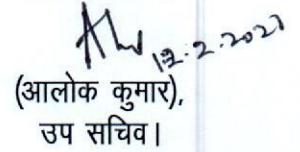 12.2.2021
(आलोक कुमार),
उप सचिव।